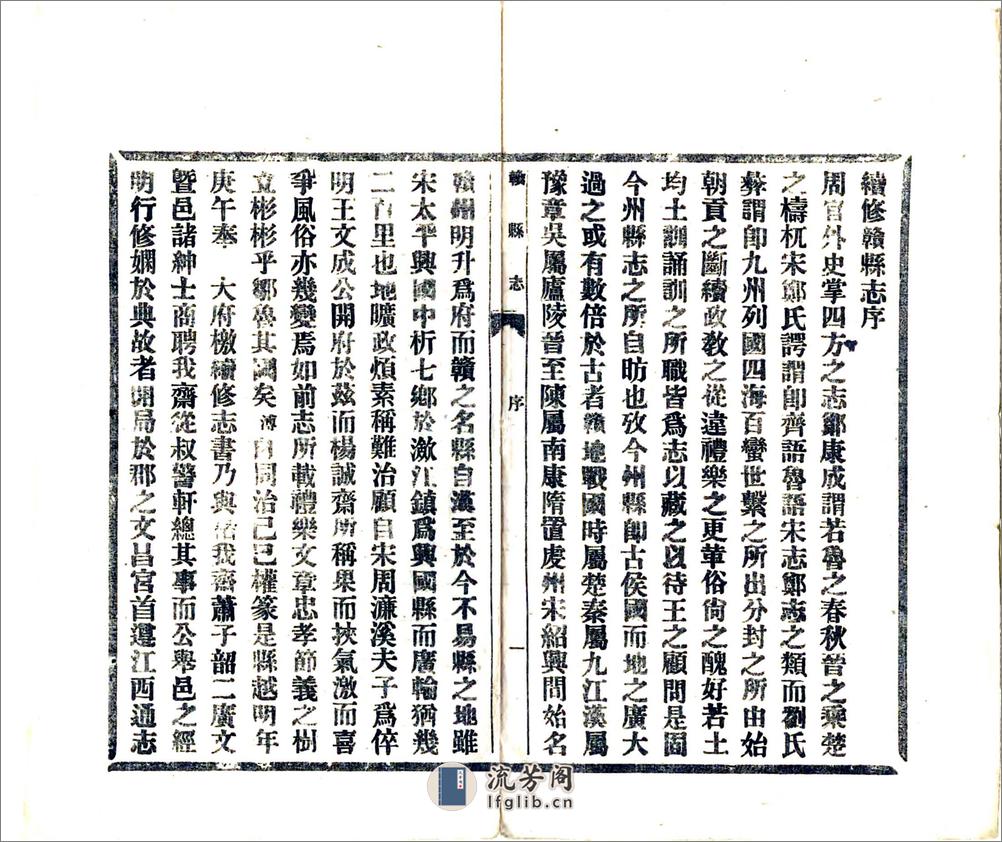 續修贛縣志序
周官外史掌四方之志鄭康成謂若魯之春秋晉之乘楚
之檮杌宋鄭氏諤謂卽齊語魯語宋志鄭志之類而劉氏
彝謂卽九州列國四海百蠻世繫之所出分封之所由始
朝貢之斷續政敎之從違禮樂之更革俗尙之醜好若土
均土訓誦訓之所職皆爲志以藏之以待王之顧問是固
今州縣志之所自昉也攷今州縣卽古侯國而地之廣大
過之或有數倍於古者贛地戰國時屬楚秦屬九江漢屬
豫章吳屬廬陵晉至陳屬南康隋置虔州宋紹興間始名
贛縣志 序 一
贛州明升爲府而贛之名縣自漢至於今不易縣之地雖
宋太平興國中析七鄉於瀲江鎮爲興國縣而廣輪猶幾
二百里也地曠政煩素稱難治顧自宋周濂溪夫子爲倅
明王文成公開府於茲而楊誠齋所稱果而挾氣激而喜
爭風俗亦幾變焉如前志所載禮樂文章忠孝節義之樹
立彬彬乎鄒魯其國矣溥自同治己巳權篆是縣越明年
庚午奉 大府檄續修志書乃與 我齋蕭子韶二廣文
曁邑諸紳士商聘我齋從叔警軒總其事而公舉邑之經
明行修嫻於典故者開局於郡之文昌宮首遵江西通志
流芳阁
lfglib.cn